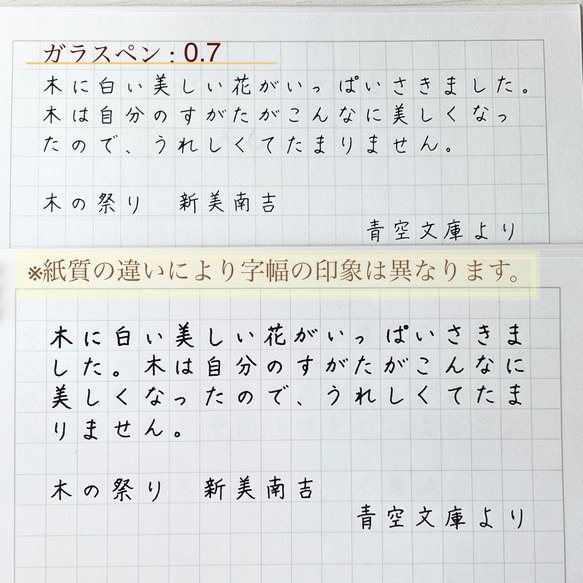 ガラスペン：0.7
木に白い美しい花がいっぱいさきました。
木は自分のすがたがこんなに美しくなっ
たので、うれしくてたまりません。
木の祭り　新美南吉
青空文庫より
※紙質の違いにより字幅の印象は異なります。
木に白い美しい花がいっぱいさきま
した。木は自分のすがたがこんなに
美しくなったので、うれしくてたま
りません。
木の祭り　新美南吉
青空文庫より